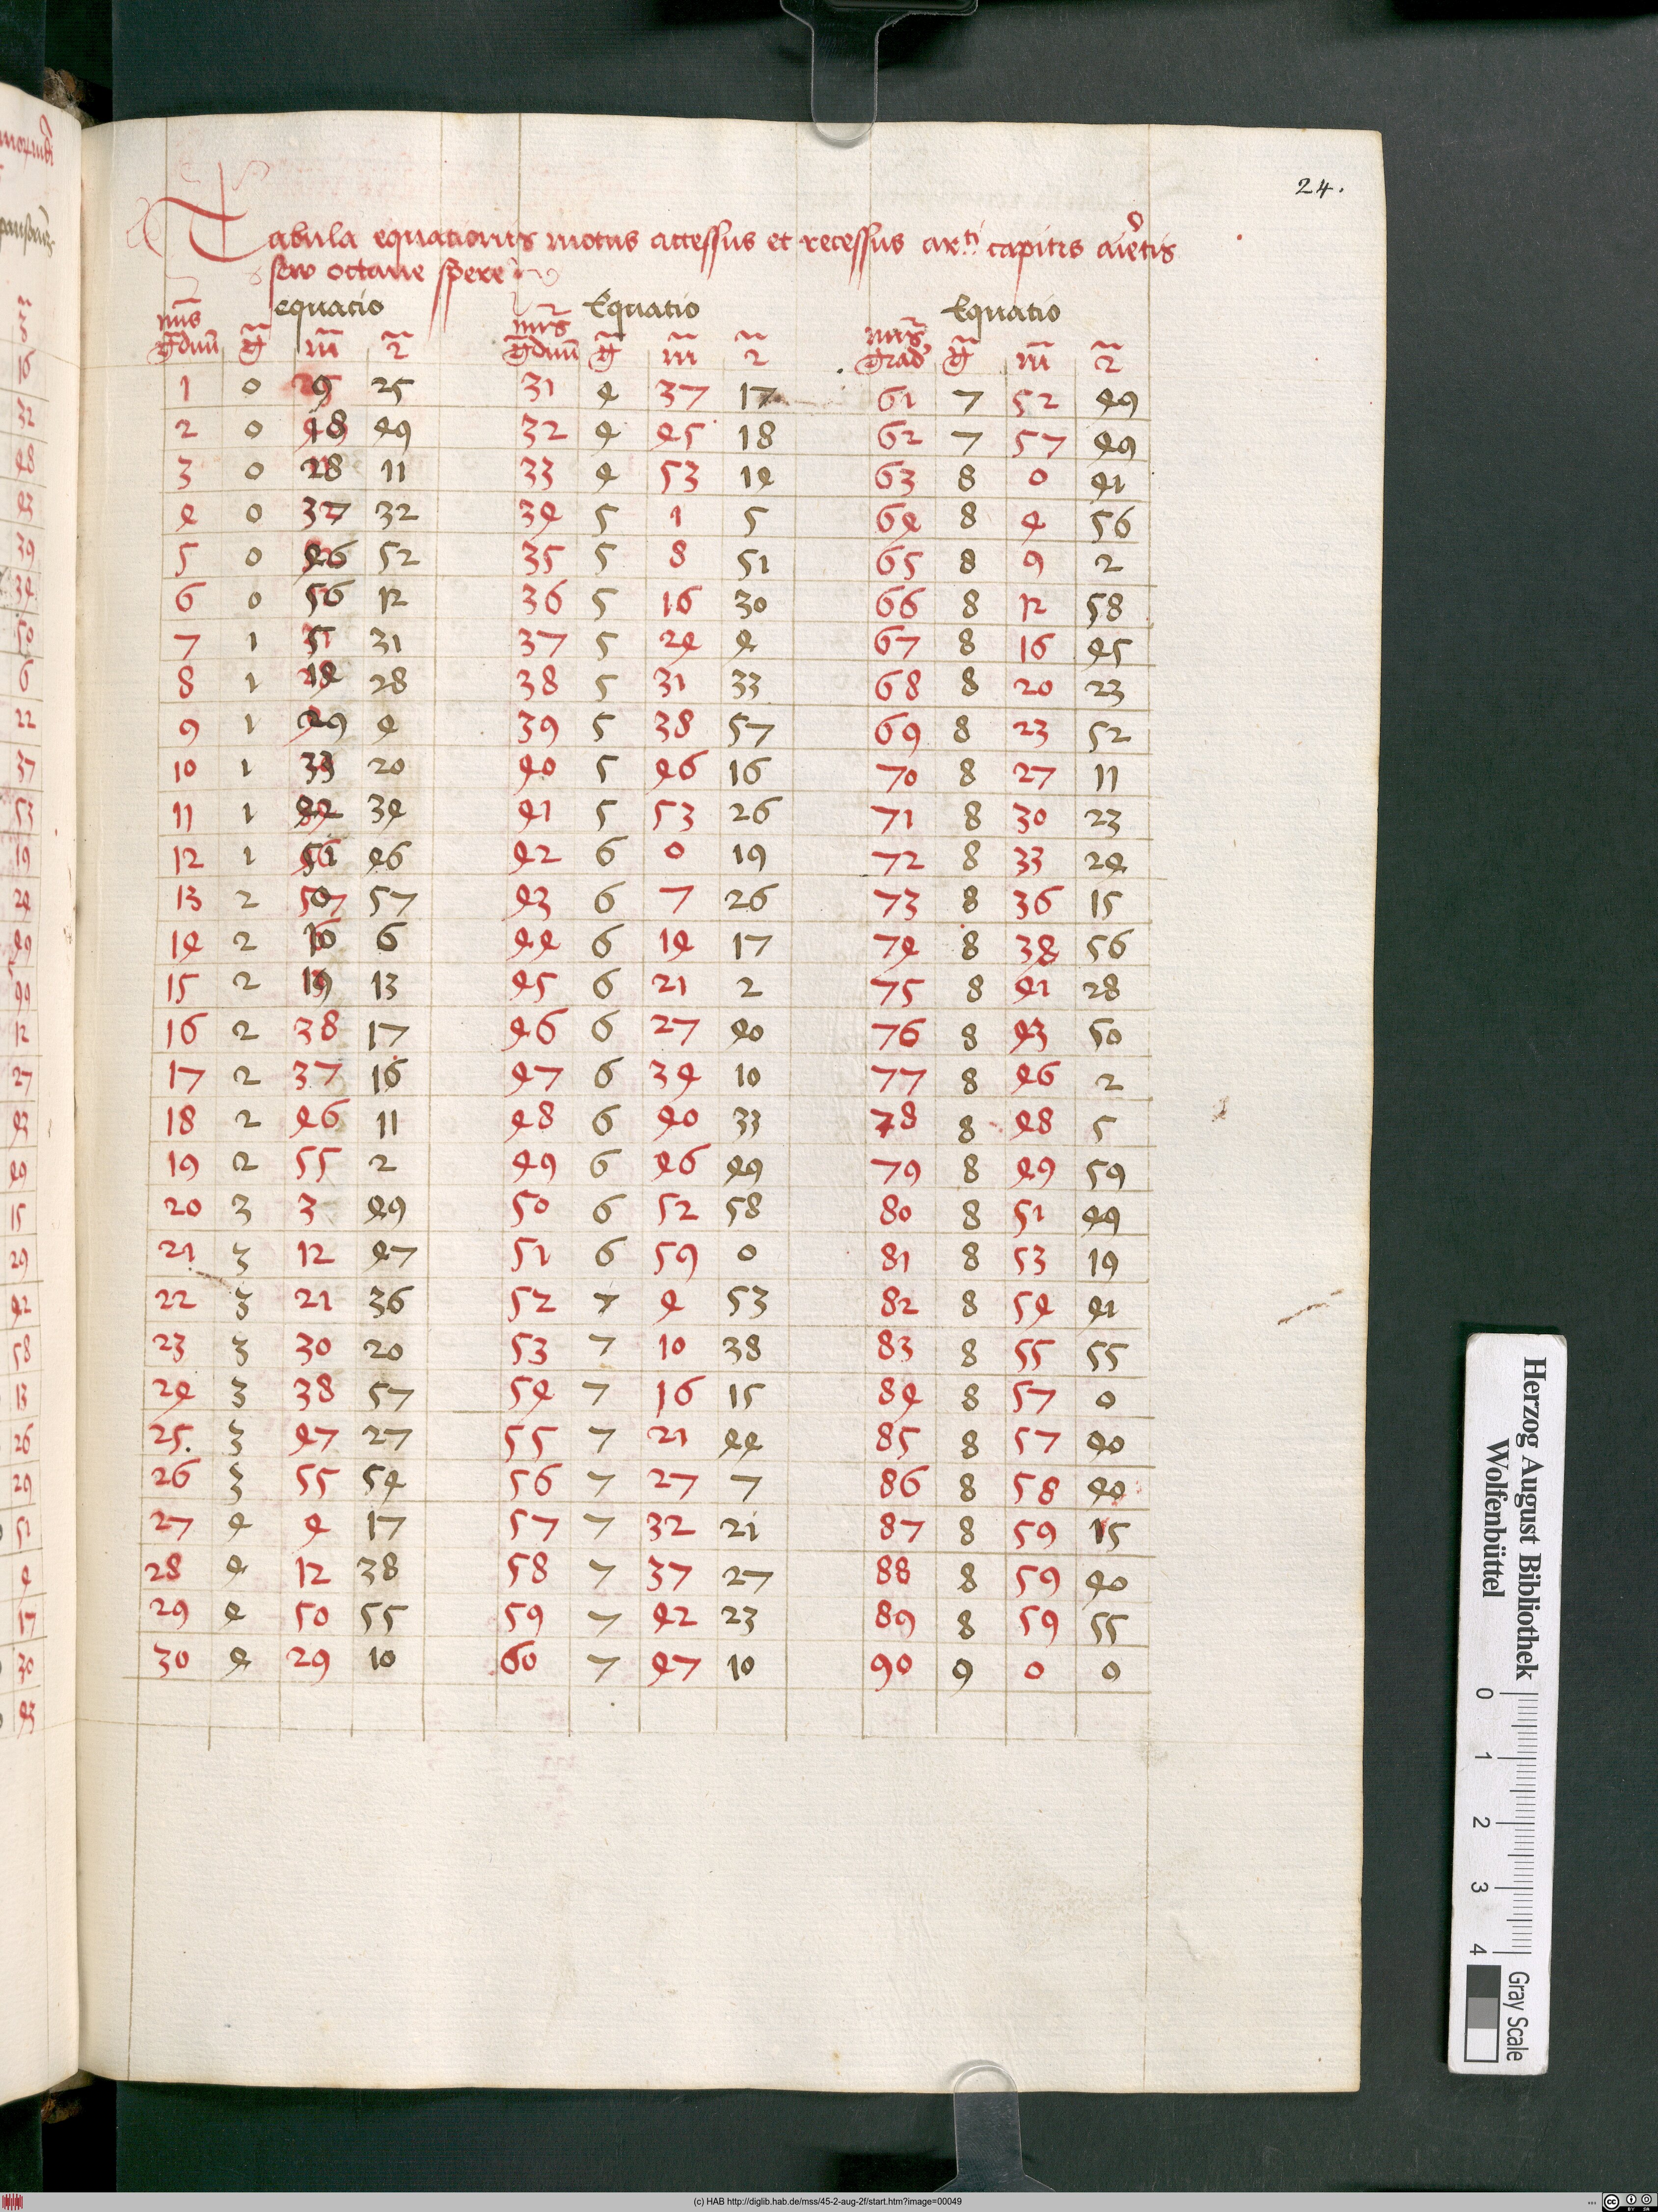 24.
Tabula equationis motus accessus et recessus capitis arietis
seu octaue spere
equatio Equatio Equatio
g m 2 g m 2 g m 2
1 0 9 25 31 4 37 17 61 7 52 49
2 0 18 49 32 4 45 18 62 7 57 49
3 0 28 11 33 4 53 14 63 8 0 41
4 0 37 32 34 5 1 5 64 8 4 56
5 0 46 52 35 5 8 51 65 8 9 2
6 0 56 12 36 5 16 30 66 8 12 58
7 1 5 31 37 5 24 4 67 8 16 45
8 1 14 28 38 5 31 33 68 8 20 23
9 1 29 4 39 5 38 57 69 8 23 52
10 1 33 20 40 5 46 16 70 8 27 11
11 1 42 34 41 5 53 26 71 8 30 23
12 1 51 46 42 6 0 19 72 8 33 24
13 2 0 57 43 6 7 26 73 8 36 15
14 2 10 6 44 6 14 17 74 8 38 56
15 2 19 13 45 6 21 2 75 8 41 28
16 2 38 17 46 6 27 40 76 8 43 50
17 2 37 16 47 6 34 10 77 8 46 2
18 2 46 11 48 6 40 33 78 8 48 5
19 2 55 2 49 6 46 49 79 8 49 59
20 3 3 49 50 6 52 58 80 8 51 49
21 3 12 47 51 6 59 0 81 8 53 19
22 3 21 36 52 7 4 53 82 8 54 41
23 3 30 20 53 7 10 38 83 8 55 55
24 3 38 57 54 7 16 15 84 8 57 0
25 3 47 27 55 7 21 44 85 8 57 40
26 3 55 54 56 7 27 7 86 8 58 40
27 4 4 17 57 7 32 21 87 8 59 15
28 4 12 38 58 7 37 27 88 8 59 40
29 4 50 55 59 7 42 23 89 8 59 55
30 4 29 10 60 7 47 10 90 9 0 0
Herzog August Bibliothek
Wolfenbüttel
0 1 2 3 4
Gray Scale
(c) HAB http://diglib.hab.de/mss/45-2-aug-2f/start.htm?image=00049